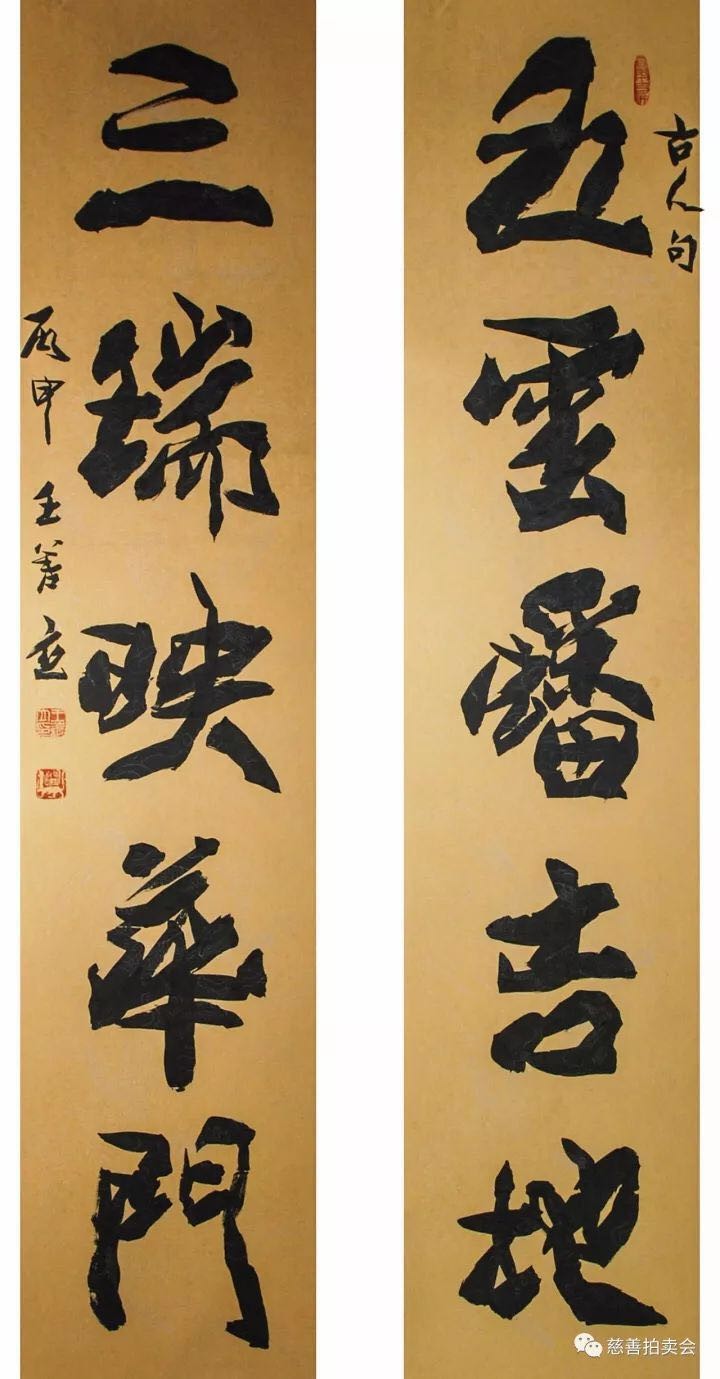 古人句
五雲蟠吉地
三瑞映華門
丙申 王善应
慈善拍卖会